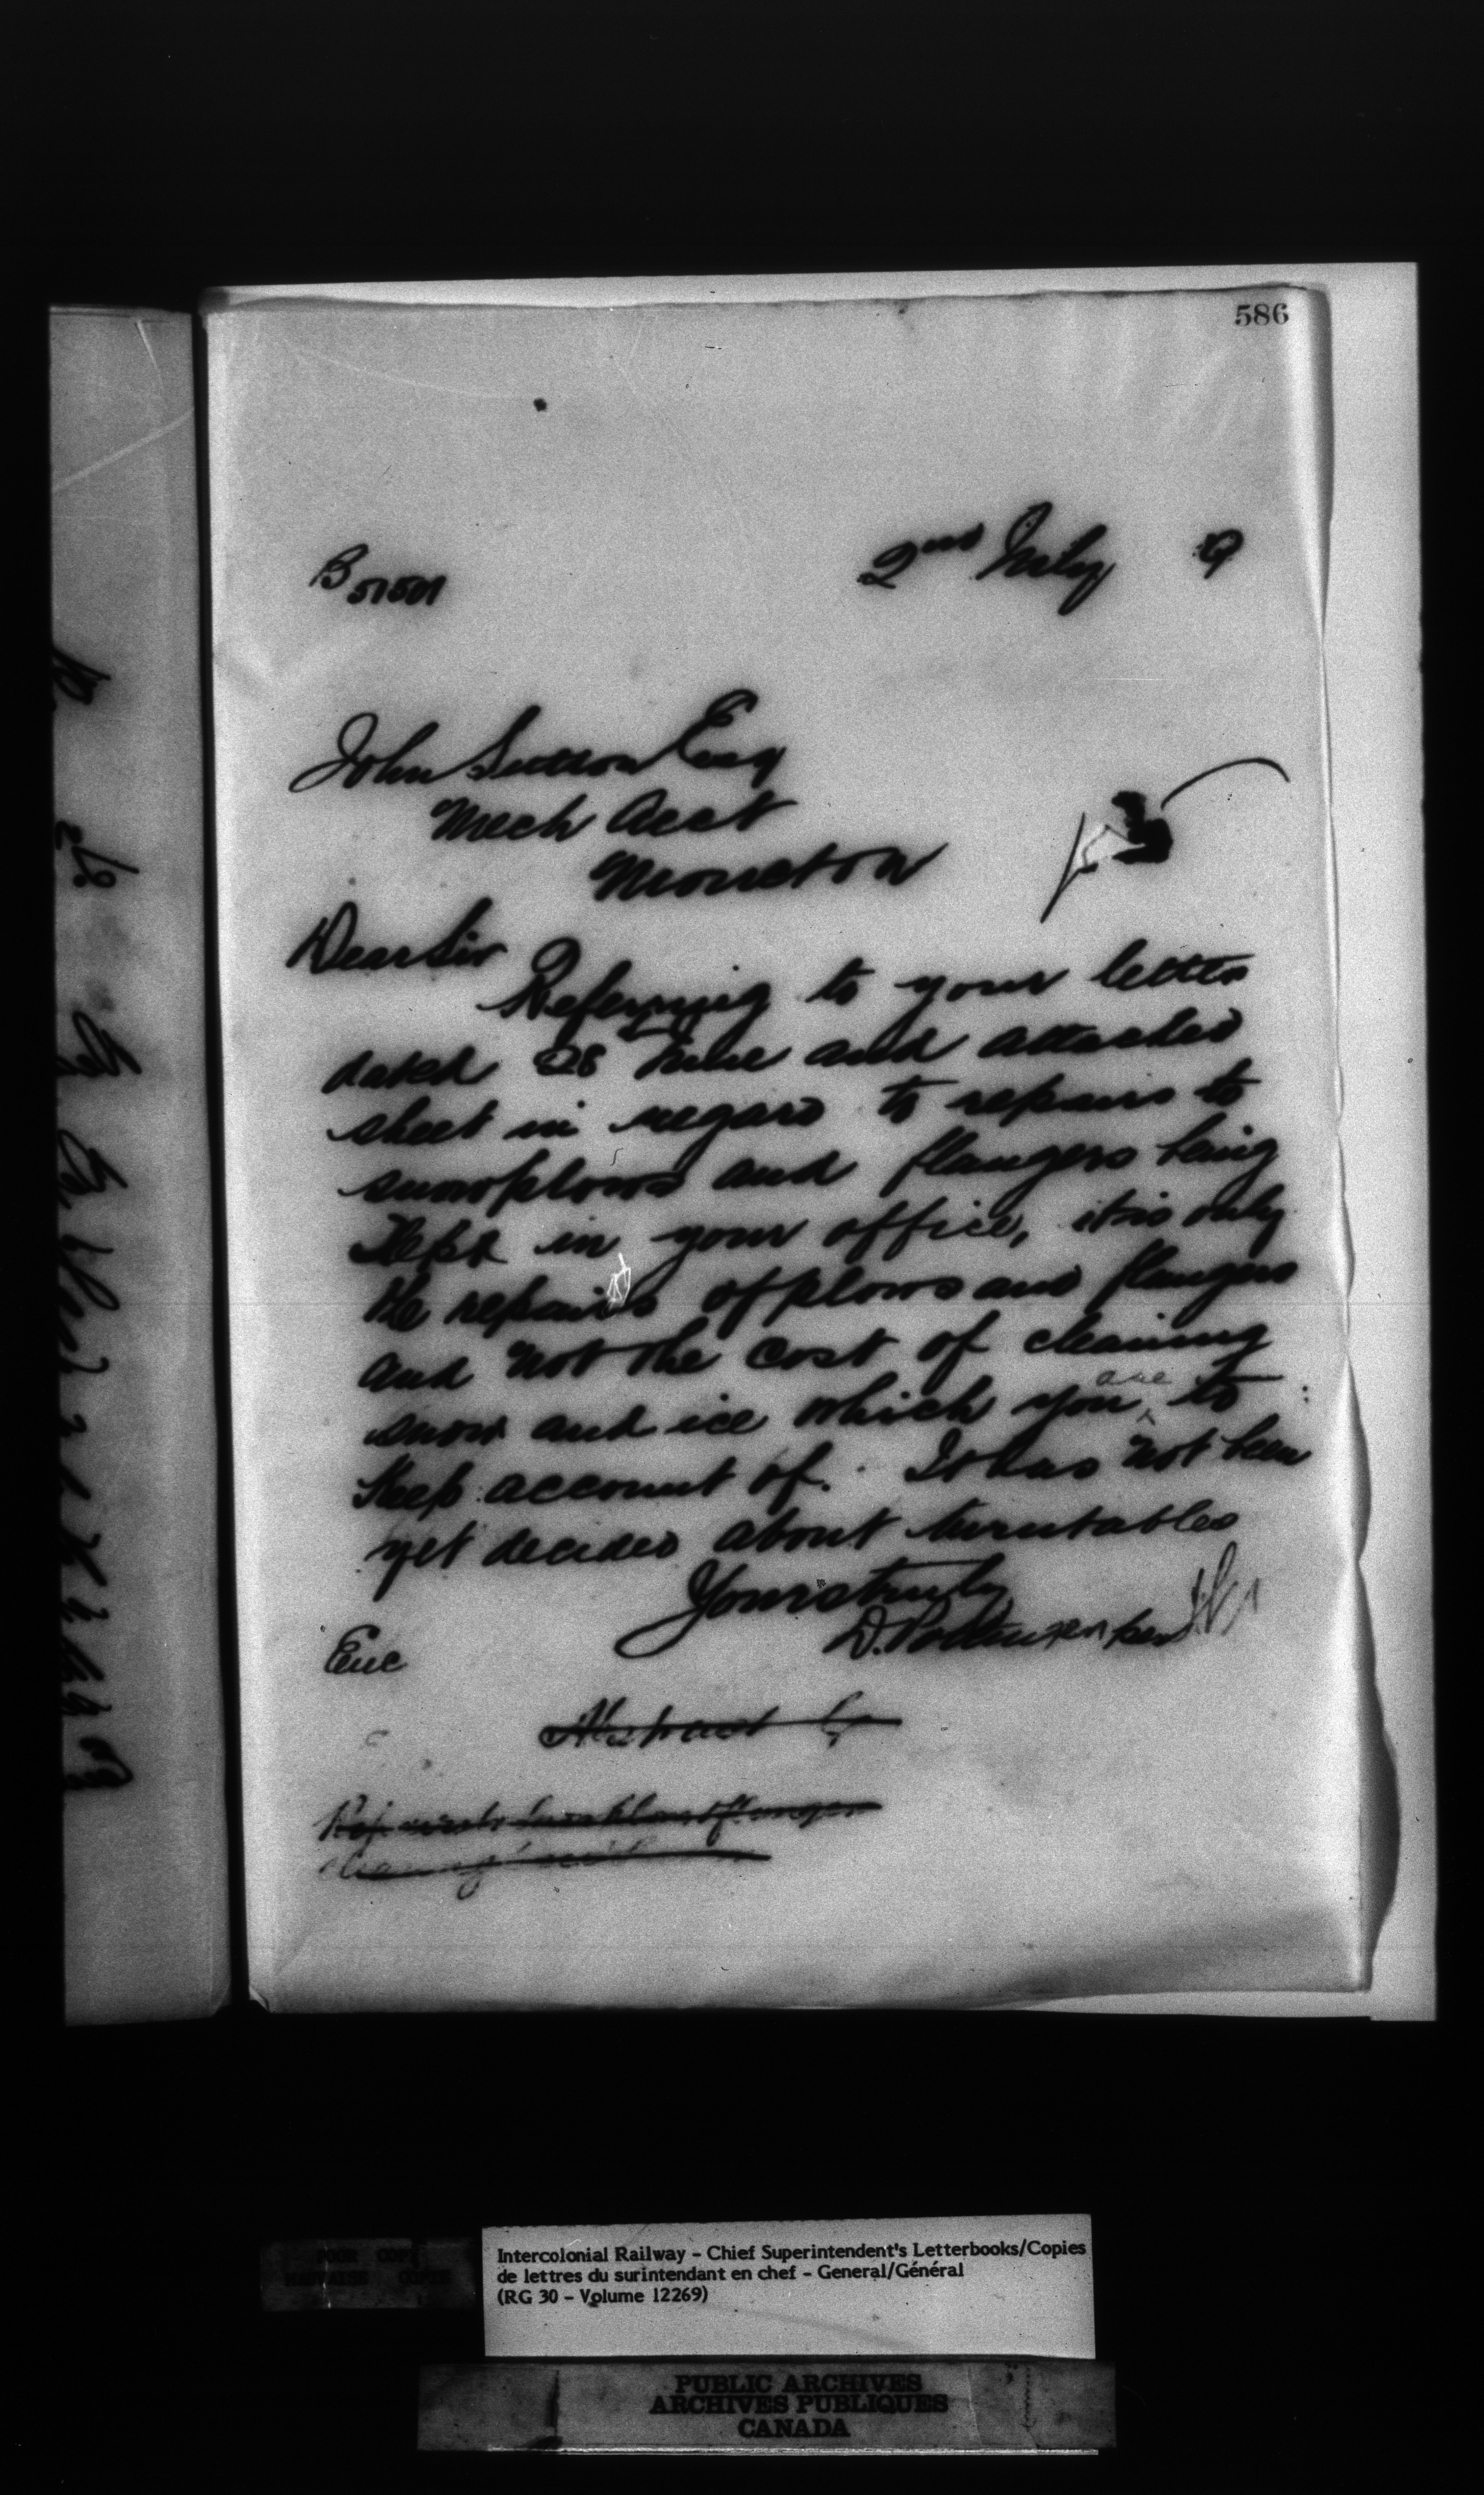 586
B 51501
2nd July 9
John Sutton Esq
Mech Acct
Moncton
Dear Sir
Referring to your letter
dated 28th June and attached
sheet in regard to repairs to
snowplows and flangers being
Kept in your office, it is only
the repairs of plows and flangers
and not the cost of cleaning
snow and ice which you are to
Keep account of. It has not been
yet decided about turntables
Yours truly
D. Pottinger
Enc
POOR COPY
MAUVAISE COPIE
Intercolonial Railway - Chief Superintendent's Letterbooks/Copies
de lettres du surintendant en chef - General/Général
(RG 30 - Volume 12269)
PUBLIC ARCHIVES
ARCHIVES PUBLIQUES
CANADA